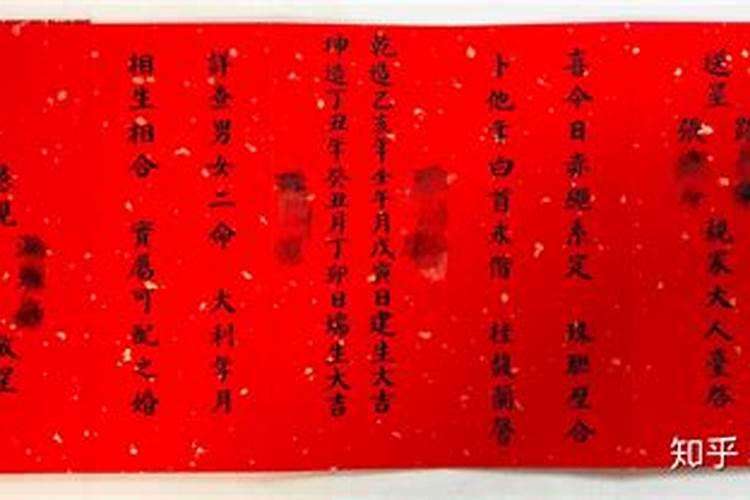 送呈 親家大人臺啓
張
喜今日赤繩系定 珠聯璧合
卜他年白首永偕 桂馥蘭馨
乾造乙亥年壬午月戊寅日建生大吉
坤造丁丑年癸丑月丁卯日瑞生大吉
詳查男女二命 大利年月
相生相合 實屬可配之婚
敬呈
知乎